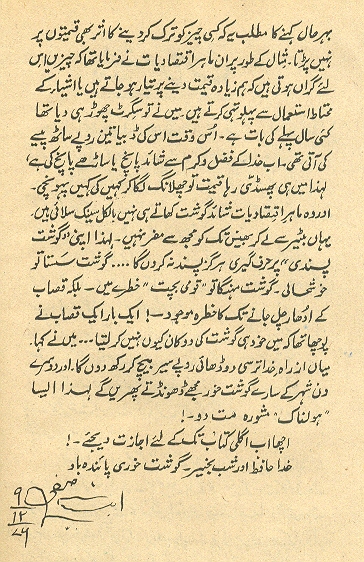 بہرحال کہنے کا مطلب یہ کہ کسی چیز کو ترک کر دینے کا اثر بھی قیمتوں پر
نہیں پڑتا۔ مثال کے طور پر ان ماہر اقتصادیات نے فرمایا تھا کہ چیزیں اس
لئے گراں ہوتی ہیں کہ ہم زیادہ قیمت دینے پر تیار ہو جاتے ہیں یا اشیار کے
محتاط استعمال سے پہلو تہی کرتے ہیں۔ میں نے تو سگرٹ چھوڑ ہی دیا تھا
کئی سال پہلے کی بات ہے۔ اُس وقت اس کی ڈبیا تین روپے ساٹھ پیسے
کی آتی تھی۔ اب خدا کے فضل و کرم سے شائد پانچ یا ساڑھے پانچ کی ہے؛
لہذا میں ہی پھسڈی رہا قیمت تو چھلانگ لگا کر کہیں کی کہیں پہونچی۔
اور وہ ماہرِ اقتصادیات شائد گوشت کھاتے ہی نہیں بالکل سینک سلائی ہیں۔
یہاں بٹیر سے لے کر بھینس تک کو مجھ سے مفر نہیں۔ لہذا اپنی "گوشت
پسندی" پر حرف گیری ہرگز پسند نہ کروں گا .... گوشت سستا تو
خوشحالی۔ گوشت مہنگا تو "قومی بچت" خطرے میں۔ بلکہ قصاب
کے اُدھار چل جانے تک کا خطرہ موجود۔! ایک بار ایک قصاب نے
پوچھا تھا کہ میں خود ہی گوشت کی دوکان کیوں نہیں کر لیتا... میں نے کہا۔
میاں از راہِ خدا ترسی دو ڈھائی روپے سیر بیچ کر رکھ دوں گا۔ اور دوسرے
دن شہر کے سارے گوشت خور مجھے ڈھونڈتے پھریں گے لہذا ایسا
"ہولناک" مشورہ مت دو۔!
اچھا اب اگلی کتاب تک کے لئے اجازت دیجئے۔!
خدا حافظ اور شب بخیر۔ گوشت خوری پائندہ باد
ابن صفی
۹
۱۲